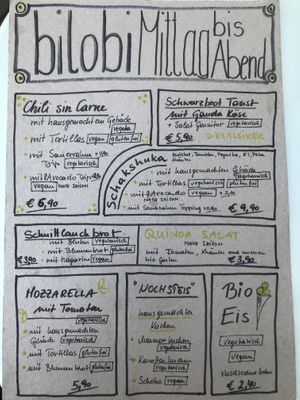 bilobi Mittag bis Abend
Chili sin Carne
mit hausgemachtem Gebäck
vegan
mit Tortillas vegan glutenfrei
mit Sauerrahm
Dip vegetarisch
mit Avocado Dip
vegan NACH SAISON
€ 6,90
Schwarzbrot Toast
mit Gouda Käse
+ Salat Garnitur vegetarisch
€ 5,90 KLASSIKER
Shakshuka
mit hausgemachtem Gebäck
vegetarisch
mit Tortillas vegetarisch glutenfrei
mit Avocado
NACH SAISON
mit Sauerrahm Topping
€ 9,90
Schnittlauchbrot
mit Butter vegetarisch
mit Blumenbrot glutenfrei
€ 3,90 mit Margarine vegan
QUINOA SALAT
NACH SAISON
mit Tomaten, Kräuter und unserem
bio Garten € 3,90
MOZZARELLA
mit Tomaten
vegetarisch
mit hausgemachtem
Gebäck vegetarisch
mit Tortillas glutenfrei
mit Blumenbrot glutenfrei
5,90
"NOCHSPEIS"
hausgemachter
Kuchen
vegetarisch
Karottenkuchen
vegetarisch
Schoko vegan
Bio
Eis
vegetarisch
vegan
€ 2,40